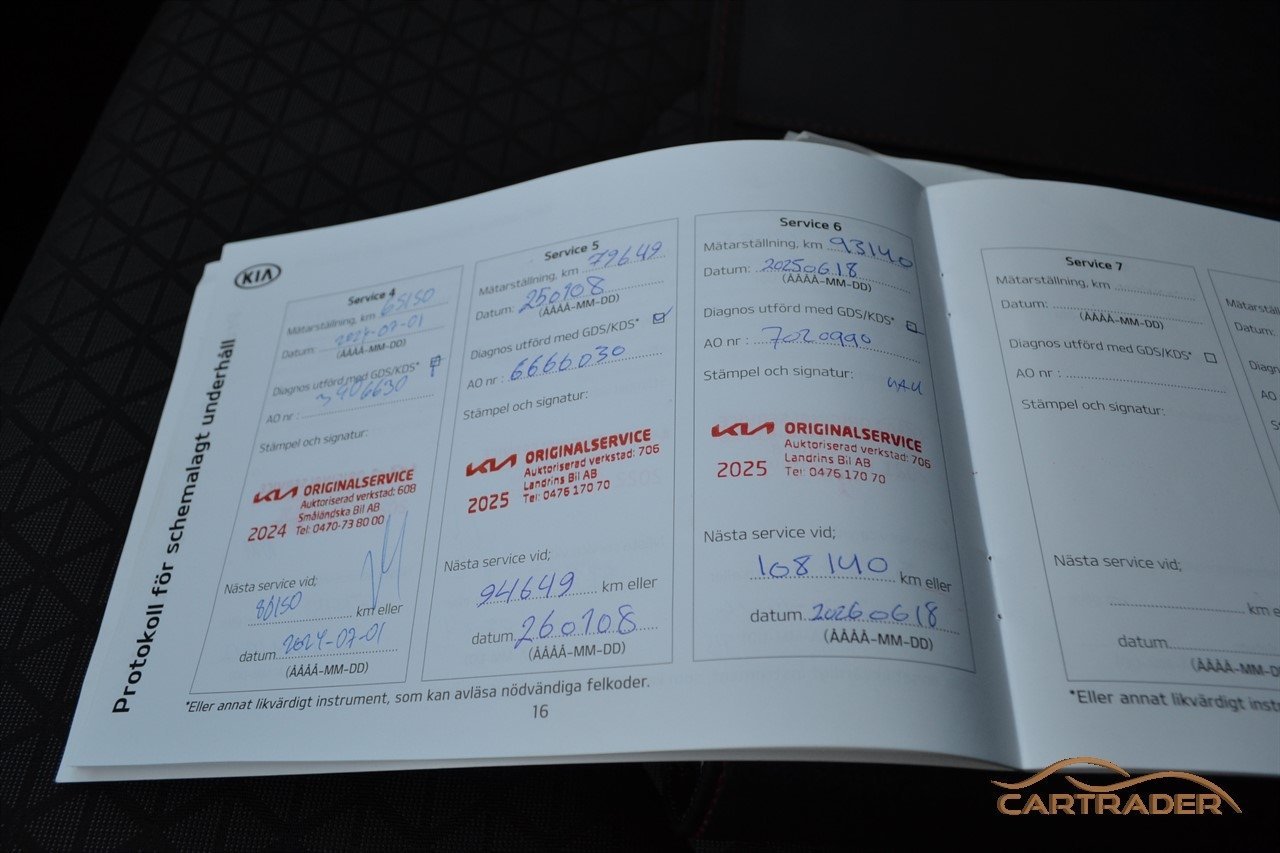 KIA
Protokoll för schemalagt underhåll
Service 4
Mätarställning, km 65150
Datum: 2024-07-01
(ÅÅÅÅ-MM-DD)
Diagnos utförd med GDS/KDS*
AO nr :
Stämpel och signatur:
KIA ORIGINALSERVICE
Auktoriserad verkstad: 608
Småländska Bil AB
2024 Tel: 0470-73 80 00
Nästa service vid;
80150 km eller
datum 2024-07-01
(ÅÅÅÅ-MM-DD)
Service 5
Mätarställning, km 79649
Datum: 250108
(ÅÅÅÅ-MM-DD)
Diagnos utförd med GDS/KDS*
AO nr : 6666030
Stämpel och signatur:
KIA ORIGINALSERVICE
Auktoriserad verkstad: 706
Landrins Bil AB
2025 Tel: 0476 170 70
Nästa service vid;
94649 km eller
datum 260108
(ÅÅÅÅ-MM-DD)
Service 6
Mätarställning, km 93140
Datum: 20250618
(ÅÅÅÅ-MM-DD)
Diagnos utförd med GDS/KDS*
AO nr : 7020990
Stämpel och signatur:
KIA ORIGINALSERVICE
Auktoriserad verkstad: 706
Landrins Bil AB
2025 Tel: 0476 170 70
Nästa service vid;
108140 km eller
datum 20260618
(ÅÅÅÅ-MM-DD)
*Eller annat likvärdigt instrument, som kan avläsa nödvändiga felkoder.
16
Service 7
Mätarställning, km
Datum:
(ÅÅÅÅ-MM-DD)
Diagnos utförd med GDS/KDS*
AO nr :
Stämpel och signatur:
Nästa service vid;
km
datum
(ÅÅÅÅ-MM-DD)
*Eller annat likvärdigt
CARTRADER